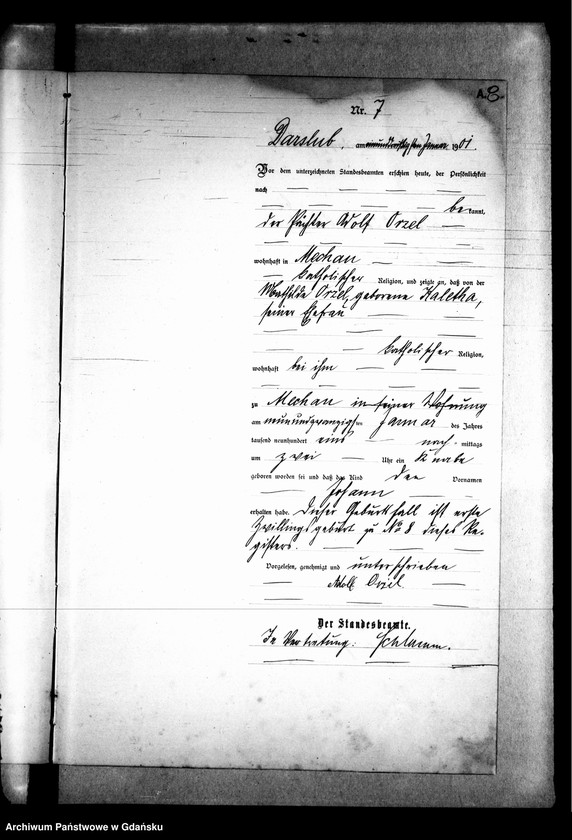 A. 8.
Nr. 7
Darslub, am einunddreißigsten Januar 1901.
Vor dem unterzeichneten Standesbeamten erschien heute, der Persönlichkeit
nach
bekannt,
der Pächter Adolf Orzel
wohnhaft in Mechau
katholischer Religion, und zeigte an, daß von der
Mathilde Orzel, geborene Kaletha,
seiner Ehefrau
katholischer Religion,
wohnhaft bei ihm
zu Mechau in seiner Wohnung
am neunundzwanzigsten Januar des Jahres
tausend neunhundert eins nachmittags
um zwei Uhr ein Knabe
geboren worden sei und daß das Kind den Vornamen
Johann
erhalten habe. Dieser Geburtsfall ist erste
Zwillingsgeburt zu No 8 dieses Re-
gisters.
Vorgelesen, genehmigt und unterschrieben
Adolf Orzel
Der Standesbeamte.
In Vertretung: Schlamm.
Archiwum Państwowe w Gdańsku